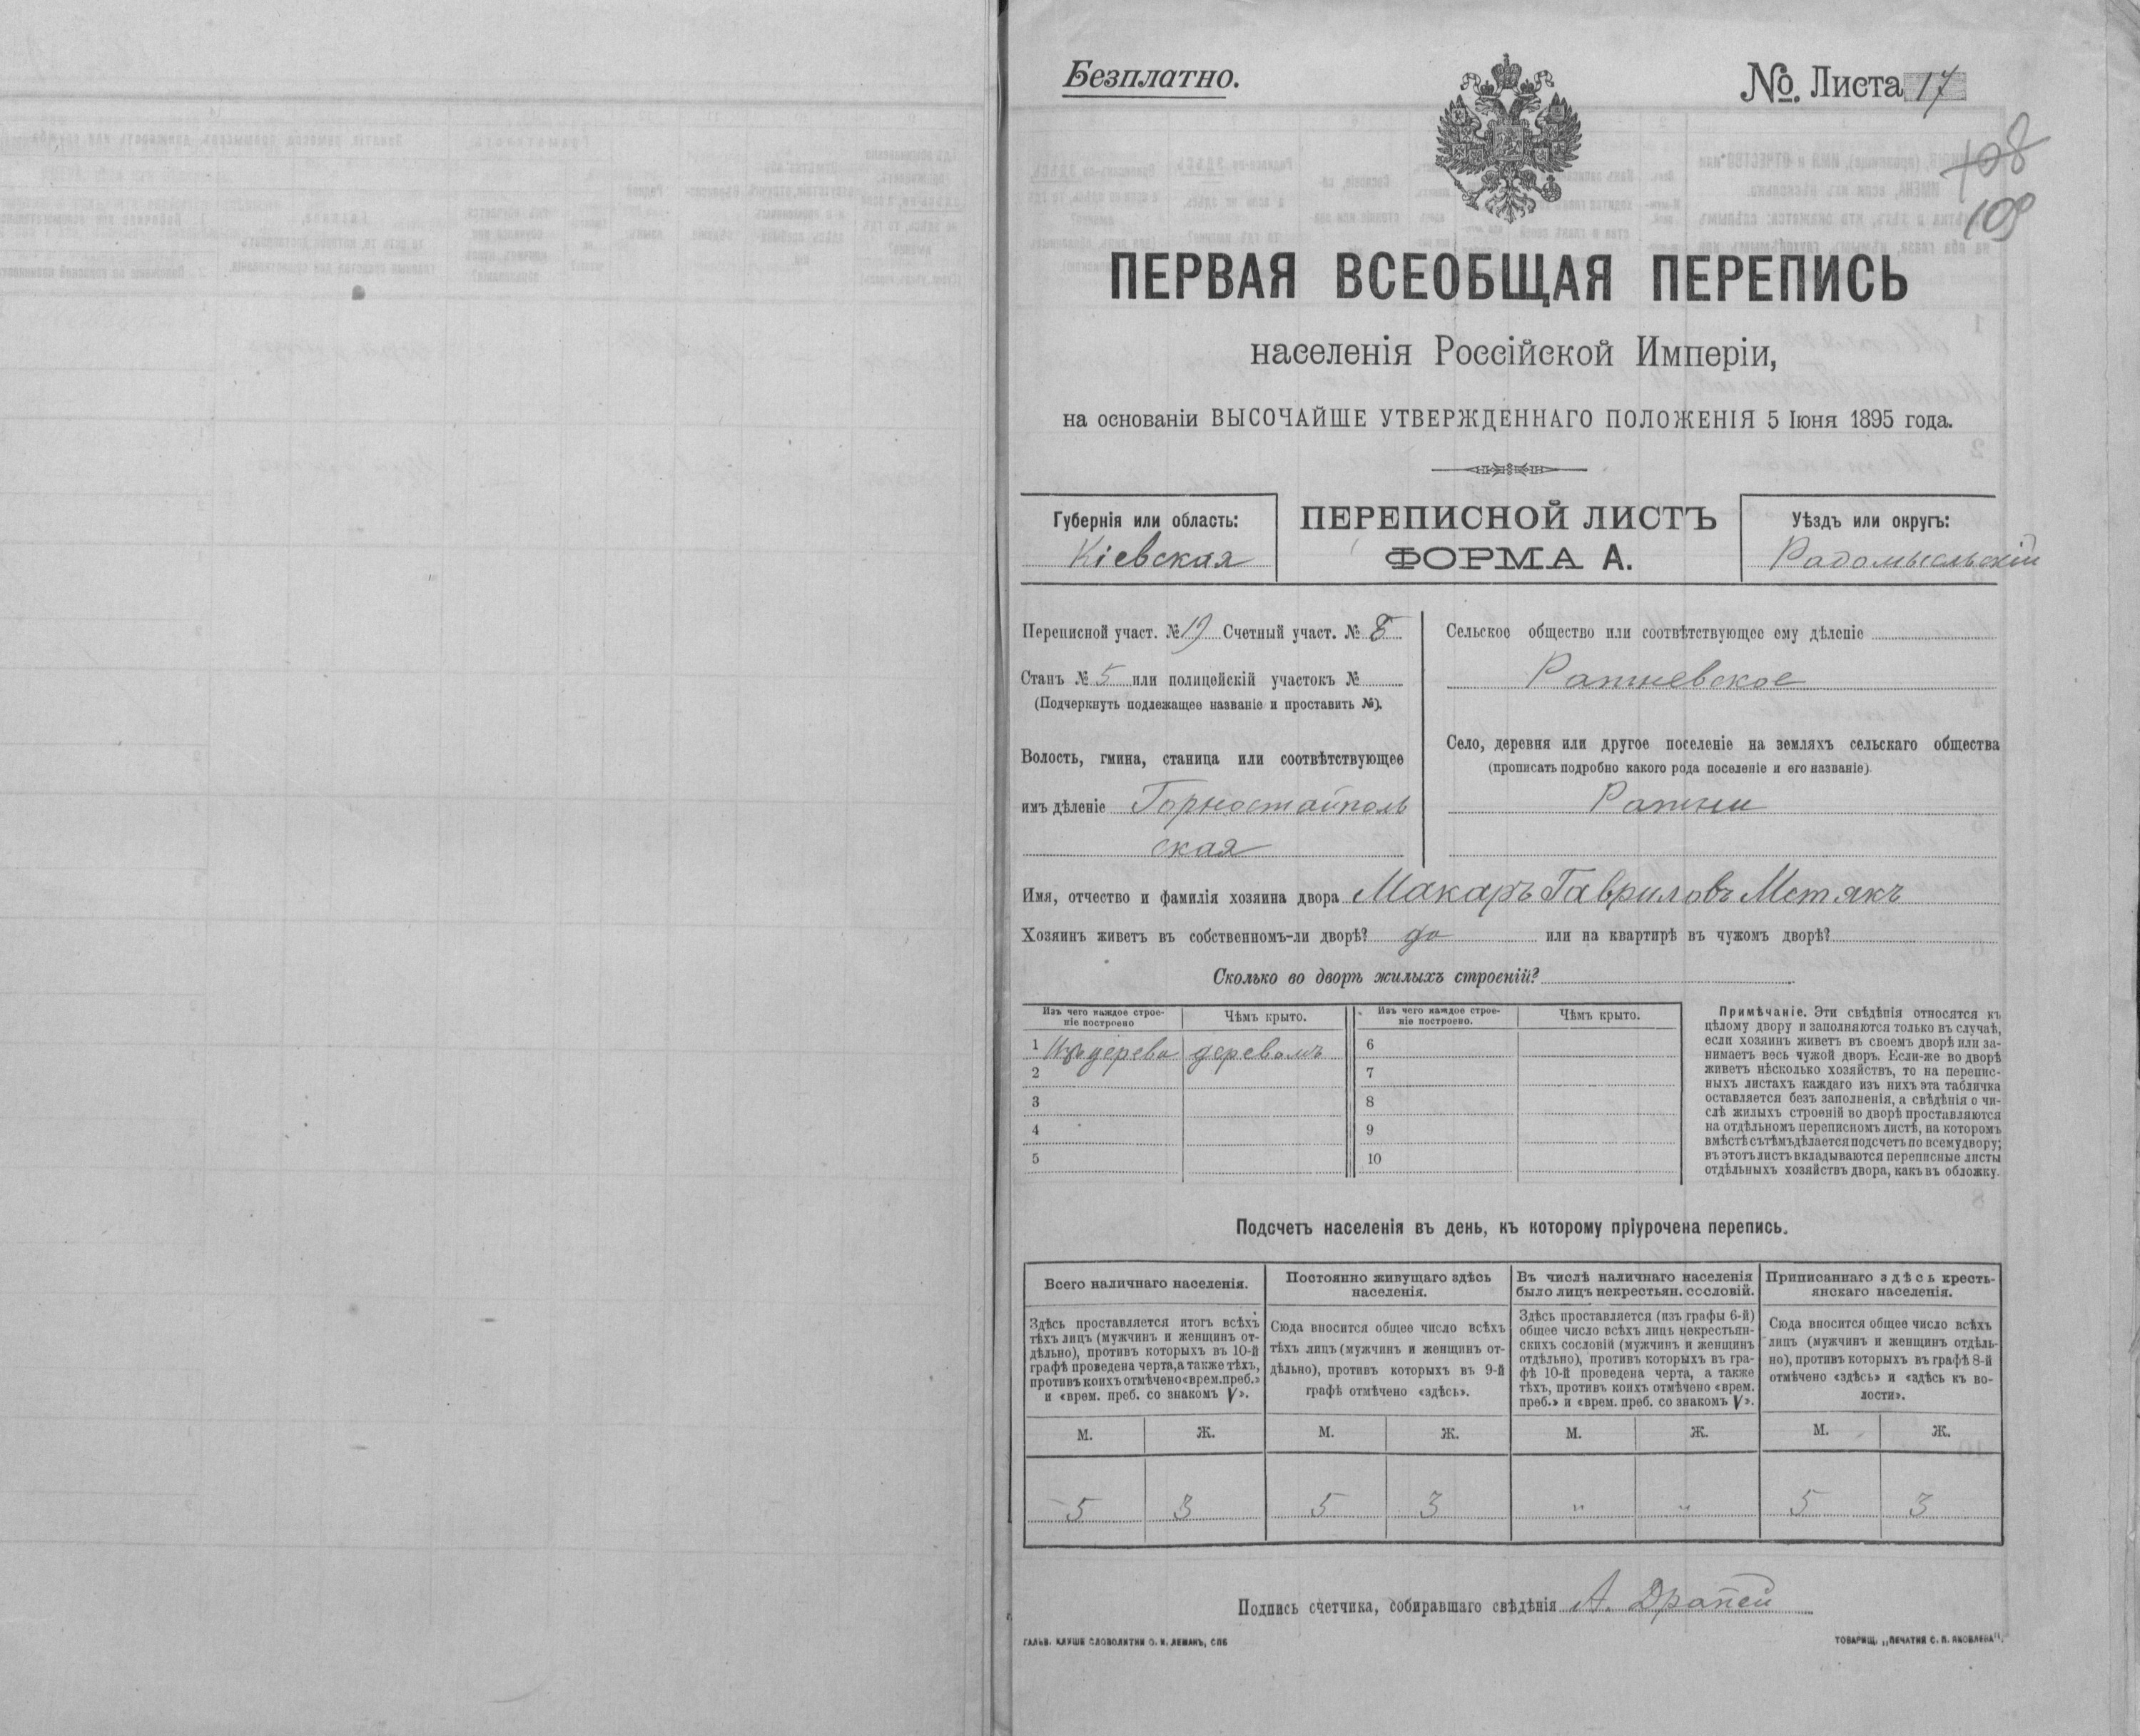 Безплатно.
№ Листа 17
108
109
ПЕРВАЯ ВСЕОБЩАЯ ПЕРЕПИСЬ
населенія Россійской Имперіи,
на основаніи ВЫСОЧАЙШЕ УТВЕРЖДЕННАГО ПОЛОЖЕНІЯ 5 Іюня 1895 года.
Губернія или область:
Кіевская
ПЕРЕПИСНОЙ ЛИСТЪ
ФОРМА А.
Уѣздъ или округъ:
Радомысльскій
Переписной участ. № 19 Счетный участ. №
Станъ № 5 или полицейскій участокъ №
(Подчеркнуть подлежащее названіе и проставить №).
Волость, гмина, станица или соотвѣтствующее
имъ дѣленіе Горностайполь
ская
Сельское общество или соотвѣтствующее ему дѣленіе
Ратневское
Село, деревня или другое поселеніе на земляхъ сельскаго общества
(прописать подробно какого рода поселеніе и его названіе).
Ратни
Имя, отчество и фамилія хозяина двора Макаръ Гавриловъ
Хозяинъ живетъ въ собственномъ-ли дворѣ? да или на квартирѣ въ чужомъ дворѣ?
Сколько во дворѣ жилыхъ строеній?
Изъ чего каждое строе-
ніе построено
Чѣмъ крыто.
Изъ чего каждое строе-
ніе построено.
Чѣмъ крыто.
1 Изъ дерева деревомъ 6
2 7
3 8
4 9
5 10
Примѣчаніе. Эти свѣдѣнія относятся къ
цѣлому двору и заполняются только въ случаѣ,
если хозяинъ живетъ въ своемъ дворѣ или за-
нимаетъ весь чужой дворъ. Если-же во дворѣ
живетъ нѣсколько хозяйствъ, то на перепис-
ныхъ листахъ каждаго изъ нихъ эта табличка
оставляется безъ заполненія, а свѣдѣнія о чи-
слѣ жилыхъ строеній во дворѣ проставляются
на отдѣльномъ переписномъ листѣ, на которомъ
вмѣстѣ съ тѣмъ дѣлается подсчетъ по всему двору;
въ этотъ листъ вкладываются переписные листы
отдѣльныхъ хозяйствъ двора, какъ въ обложку.
Подсчетъ населенія въ день, къ которому пріурочена перепись.
Всего наличнаго населенія.
Здѣсь проставляется итогъ всѣхъ
тѣхъ лицъ (мужчинъ и женщинъ от-
дѣльно), противъ которыхъ въ 10-й
графѣ проведена черта, а также тѣхъ,
противъ коихъ отмѣчено «врем. преб.»
и «врем. преб. со знакомъ V».
Постоянно живущаго здѣсь
населенія.
Сюда вносится общее число всѣхъ
тѣхъ лицъ (мужчинъ и женщинъ от-
дѣльно), противъ которыхъ въ 9-й
графѣ отмѣчено «здѣсь».
Въ числѣ наличнаго населенія
было лицъ некрестьян. сословій.
Здѣсь проставляется (изъ графы 6-й)
общее число всѣхъ лицъ некрестьян-
скихъ сословій (мужчинъ и женщинъ
отдѣльно), противъ которыхъ въ гра-
фѣ 10-й проведена черта, а также
тѣхъ, противъ коихъ отмѣчено «врем.
преб.» и «врем. преб. со знакомъ V».
Приписаннаго здѣсь кресть-
янскаго населенія.
Сюда вносится общее число всѣхъ
лицъ (мужчинъ и женщинъ отдѣль-
но), противъ которыхъ въ графѣ 8-й
отмѣчено «здѣсь» и «здѣсь къ во-
лости».
М. Ж. М. Ж. М. Ж. М. Ж.
5 3 5 3 " " 5 3
Подпись счетчика, собиравшаго свѣдѣнія А.
ГАЛЬВ. КЛИШЕ СЛОВОЛИТНИ О. И. ЛЕМАНЪ, СПБ
ТОВАРИЩ. „ПЕЧАТНЯ С. П. ЯКОВЛЕВА".